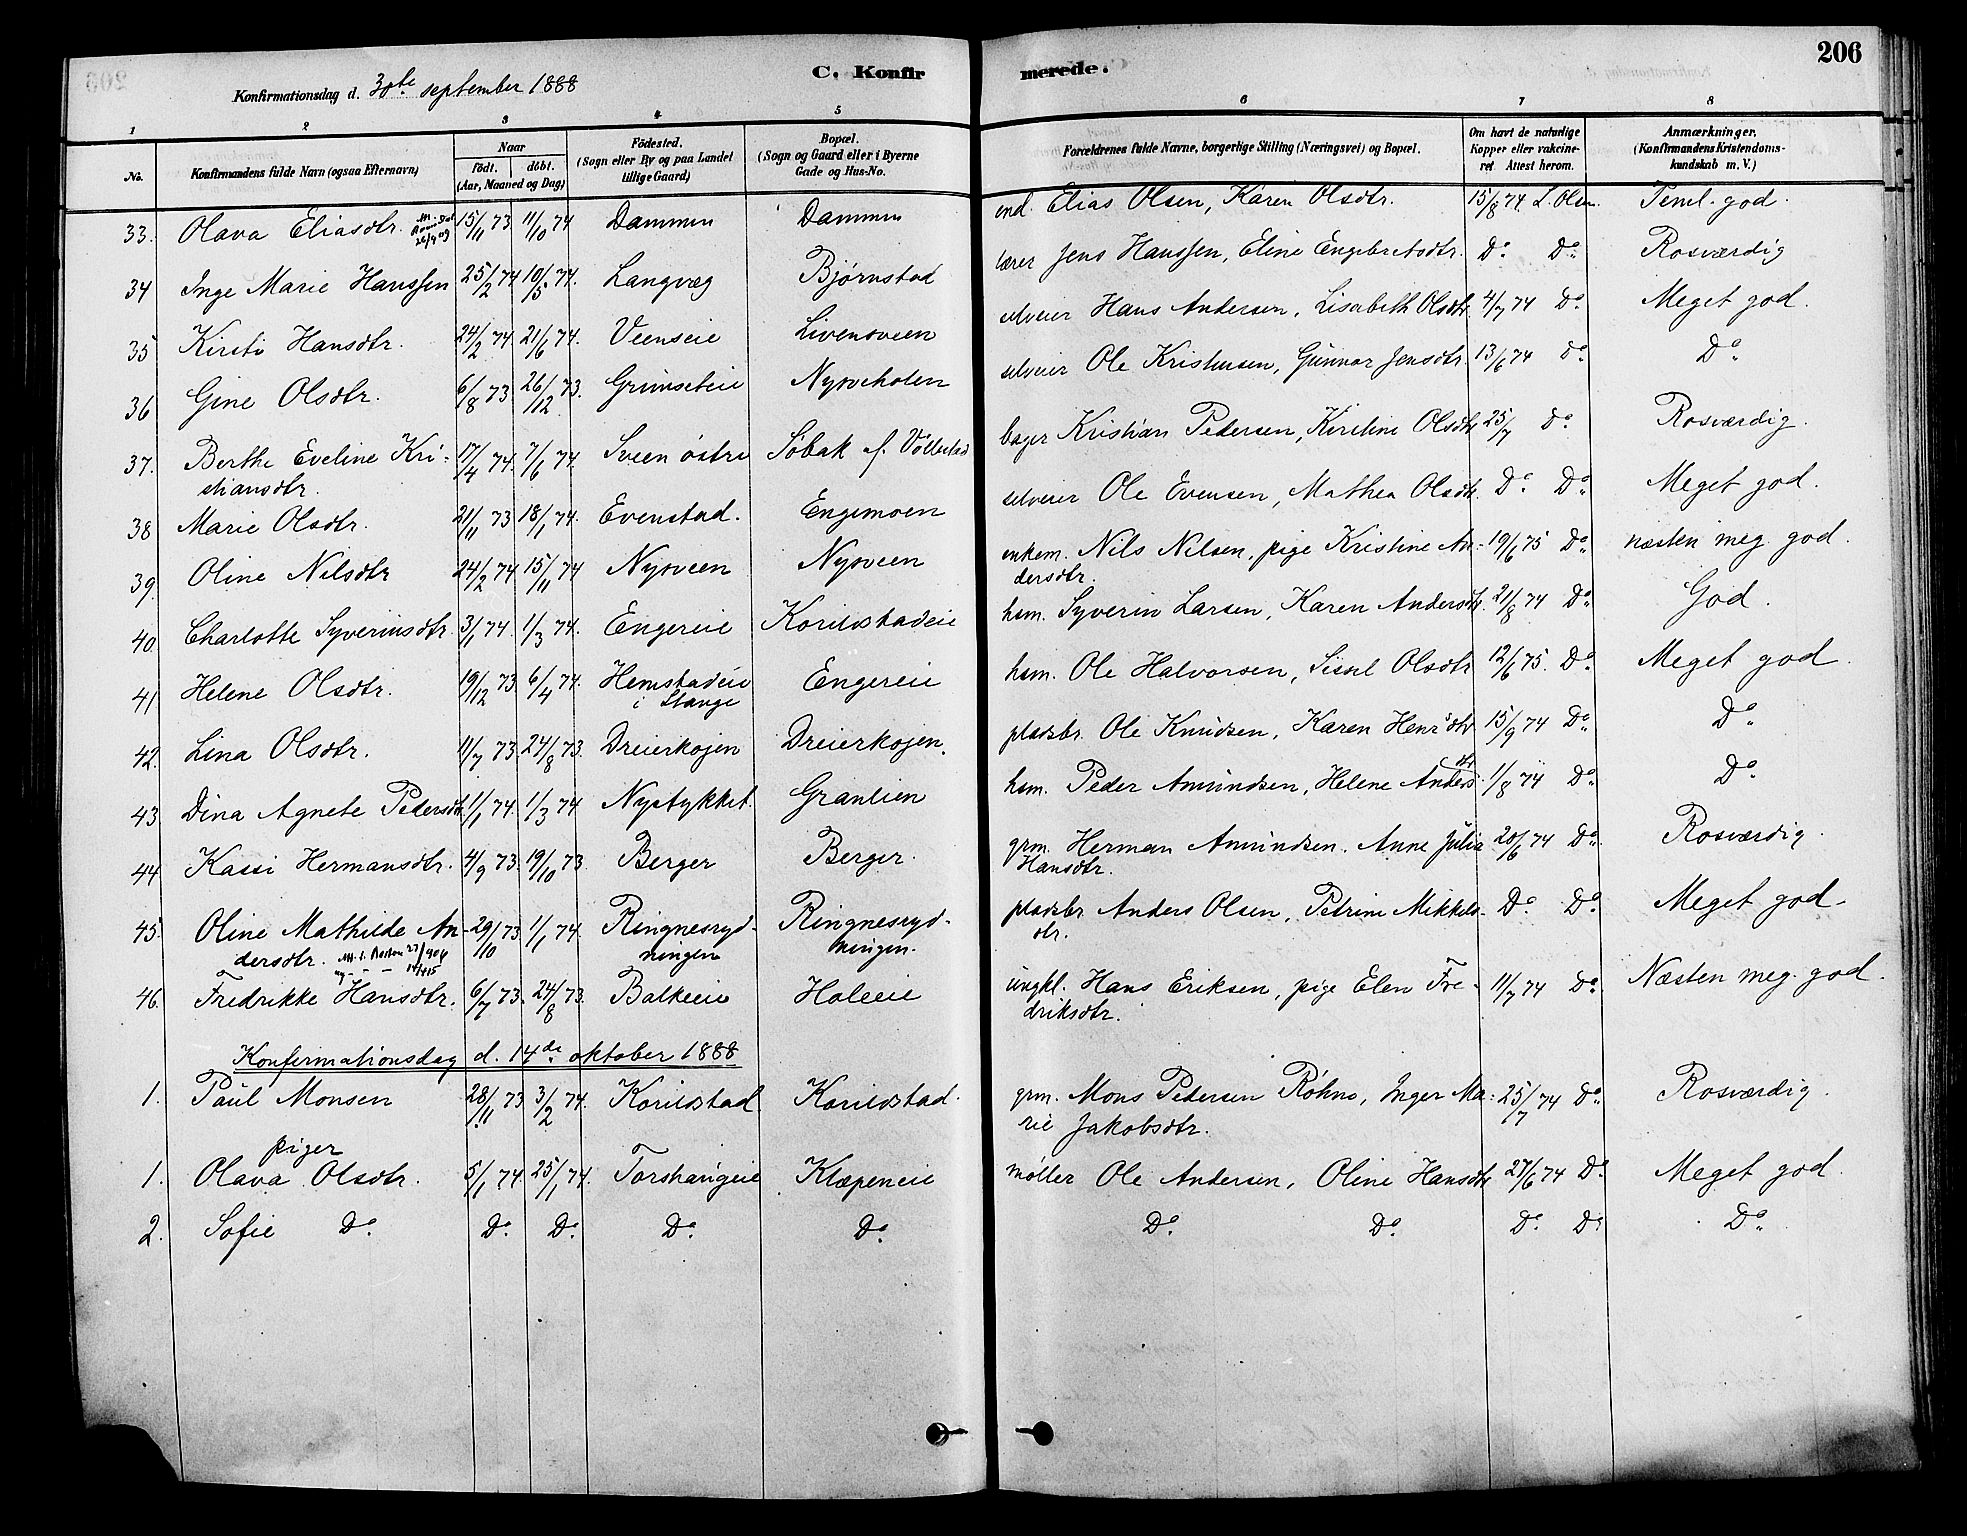 206
C. Konfirmerede.
Konfirmationsdag d. 30te september 1888
1 2 3 4 5 6 7 8
No. Konfirmandens fulde Navn (ogsaa Efternavn) Naar født. døbt. (Aar, Maaned og Dag) Födested. (Sogn eller By og paa Landet tillige Gaard) Bopæl. (Sogn og Gaard eller i Byerne Gade og Hus-No. Forældrenes fulde Navne, borgerlige Stilling (Næringsvei) og Bopæl. Om havt de naturlige Kopper eller vakcineret. Attest herom. Anmærkninger. (Konfirmandens Kristendomskundskab m. V.)
33. Olava Eliasdtr. 15/11 73 11/10 74 Dammen Dammen Elias Olsen, Karen Olsdtr. 15/8 74 L. Olsen Teml. god.
34 Inge Marie Hanssen 25/2 74 10/5 74. Langvæg Bjørnstad lærer Jens Hanssen, Eline Engebretsdtr. Do Do Rosværdig
35 Kirsti Hansdtr. 24/2 74. 21/6 74. Veenseie Livensveen selveier Hans Andersen, Lisabeth Olsdtr 4/7 74 Do Meget god.
36 Gine Olsdtr. 6/8 73 26/12 73. Grimseteie Nysveholen selveier Ole Kristensen, Gunnor Jensdtr. 13/6 74 Do Do
37. Berthe Eveline Kri-
stiansdtr. 17/4 74. 7/6 74. Sveen østre Søbak f. Vollestad bager Kristian Pedersen, Kirstine Olsdtr 25/7 Do Rosværdig.
38 Marie Olsdtr. 21/11 73 18/1 74. Evenstad. Engemoen selveier Ole Evensen, Mathea Olsdtr. Do Do Meget god.
39. Oline Nilsdtr 24/2 74 15/11 74 Nysveen Nysveen enkem. Nils Nilsen, pige Kristine An-
dersdtr. 19/6 75 Do næsten meg. god.
40. Charlotte Syverinsdtr. 3/1 74. 1/3 74. Engereie Korildstadeie hsm. Syverin Larsen, Karen Andersdtr. 21/8 74 Do God.
41 Helene Olsdtr. 19/12 73. 6/4 74. Hemstadeie
i Stange Engereie hsm. Ole Halvorsen, Sissel Olsdtr 12/6 75. Do Meget god.
42. Lina Olsdtr. 11/7 73. 24/8 73. Dreierkojen Dreierkojen. pladsbr. Ole Knudsen, Karen Henrsdtr 15/9 74 Do Do
43. Dina Agnete Pedersdtr. 1/1 74. 1/3 74 Nystykket Granlien hsm. Peder Amundsen, Helene Andersdtr. 1/8 74 Do Do
44 Kassi Hermansdtr. 4/9 73. 19/10 73 Berger Berger. grm. Herman Amundsen. Anne Julia
Hansdtr. 20/6 74 Do Rosværdig.
45. Oline Mathilde An-
dersdtr. 29/10 73 1/1 74. Ringnesryd-
ningen Ringnesryd-
ningen. pladsbr Anders Olsen, Petrine Mikkels-
dtr. Do Do Meget god.
46. Fredrikke Hansdtr. 6/7 73. 24/8 73. Balkeeie Holeeie ungkl. Hans Eriksen, pige Elen Fre-
driksdtr. 11/7 74 Do Næsten meg. god.
Konfirmationsdag d. 14de oktober 1888
1. Paul Monsen 28/11 73 3/2 74. Korildstad Korildstad. grm. Mons Pedersen Røhne, Inger Ma-
rie Jakobsdtr. 25/7 74 Do Rosværdig.
piger
1. Olava Olsdtr. 5/1 74. 25/1 74. Torshaugeie Klæpeneie møller Ole Andersen, Oline Hansdtr 27/6 74 Do Meget god.
2. Sofie Do Do Do Do Do Do Do Do Do Do